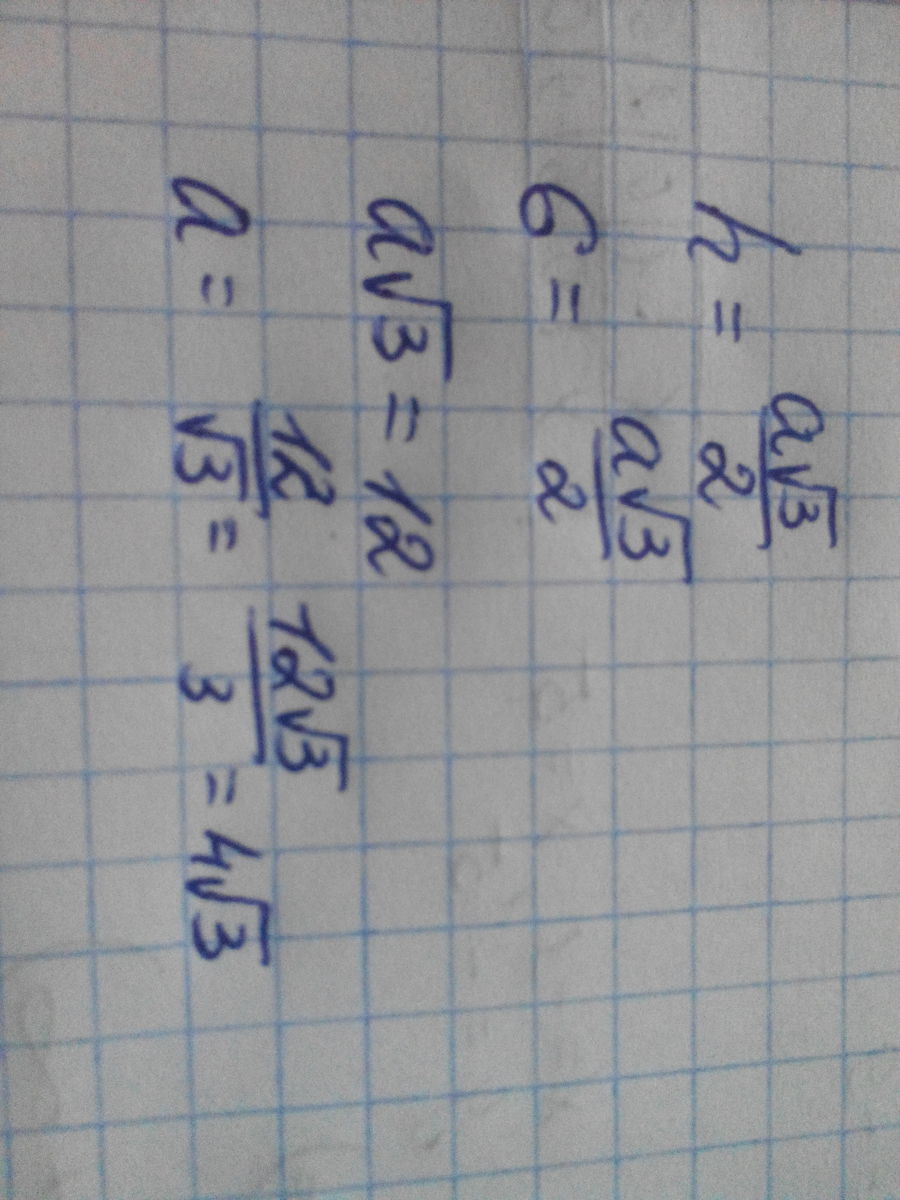 h = a√3/2
6 = a√3/2
a√3 = 12
a = 12/√3 = 12√3/3 = 4√3